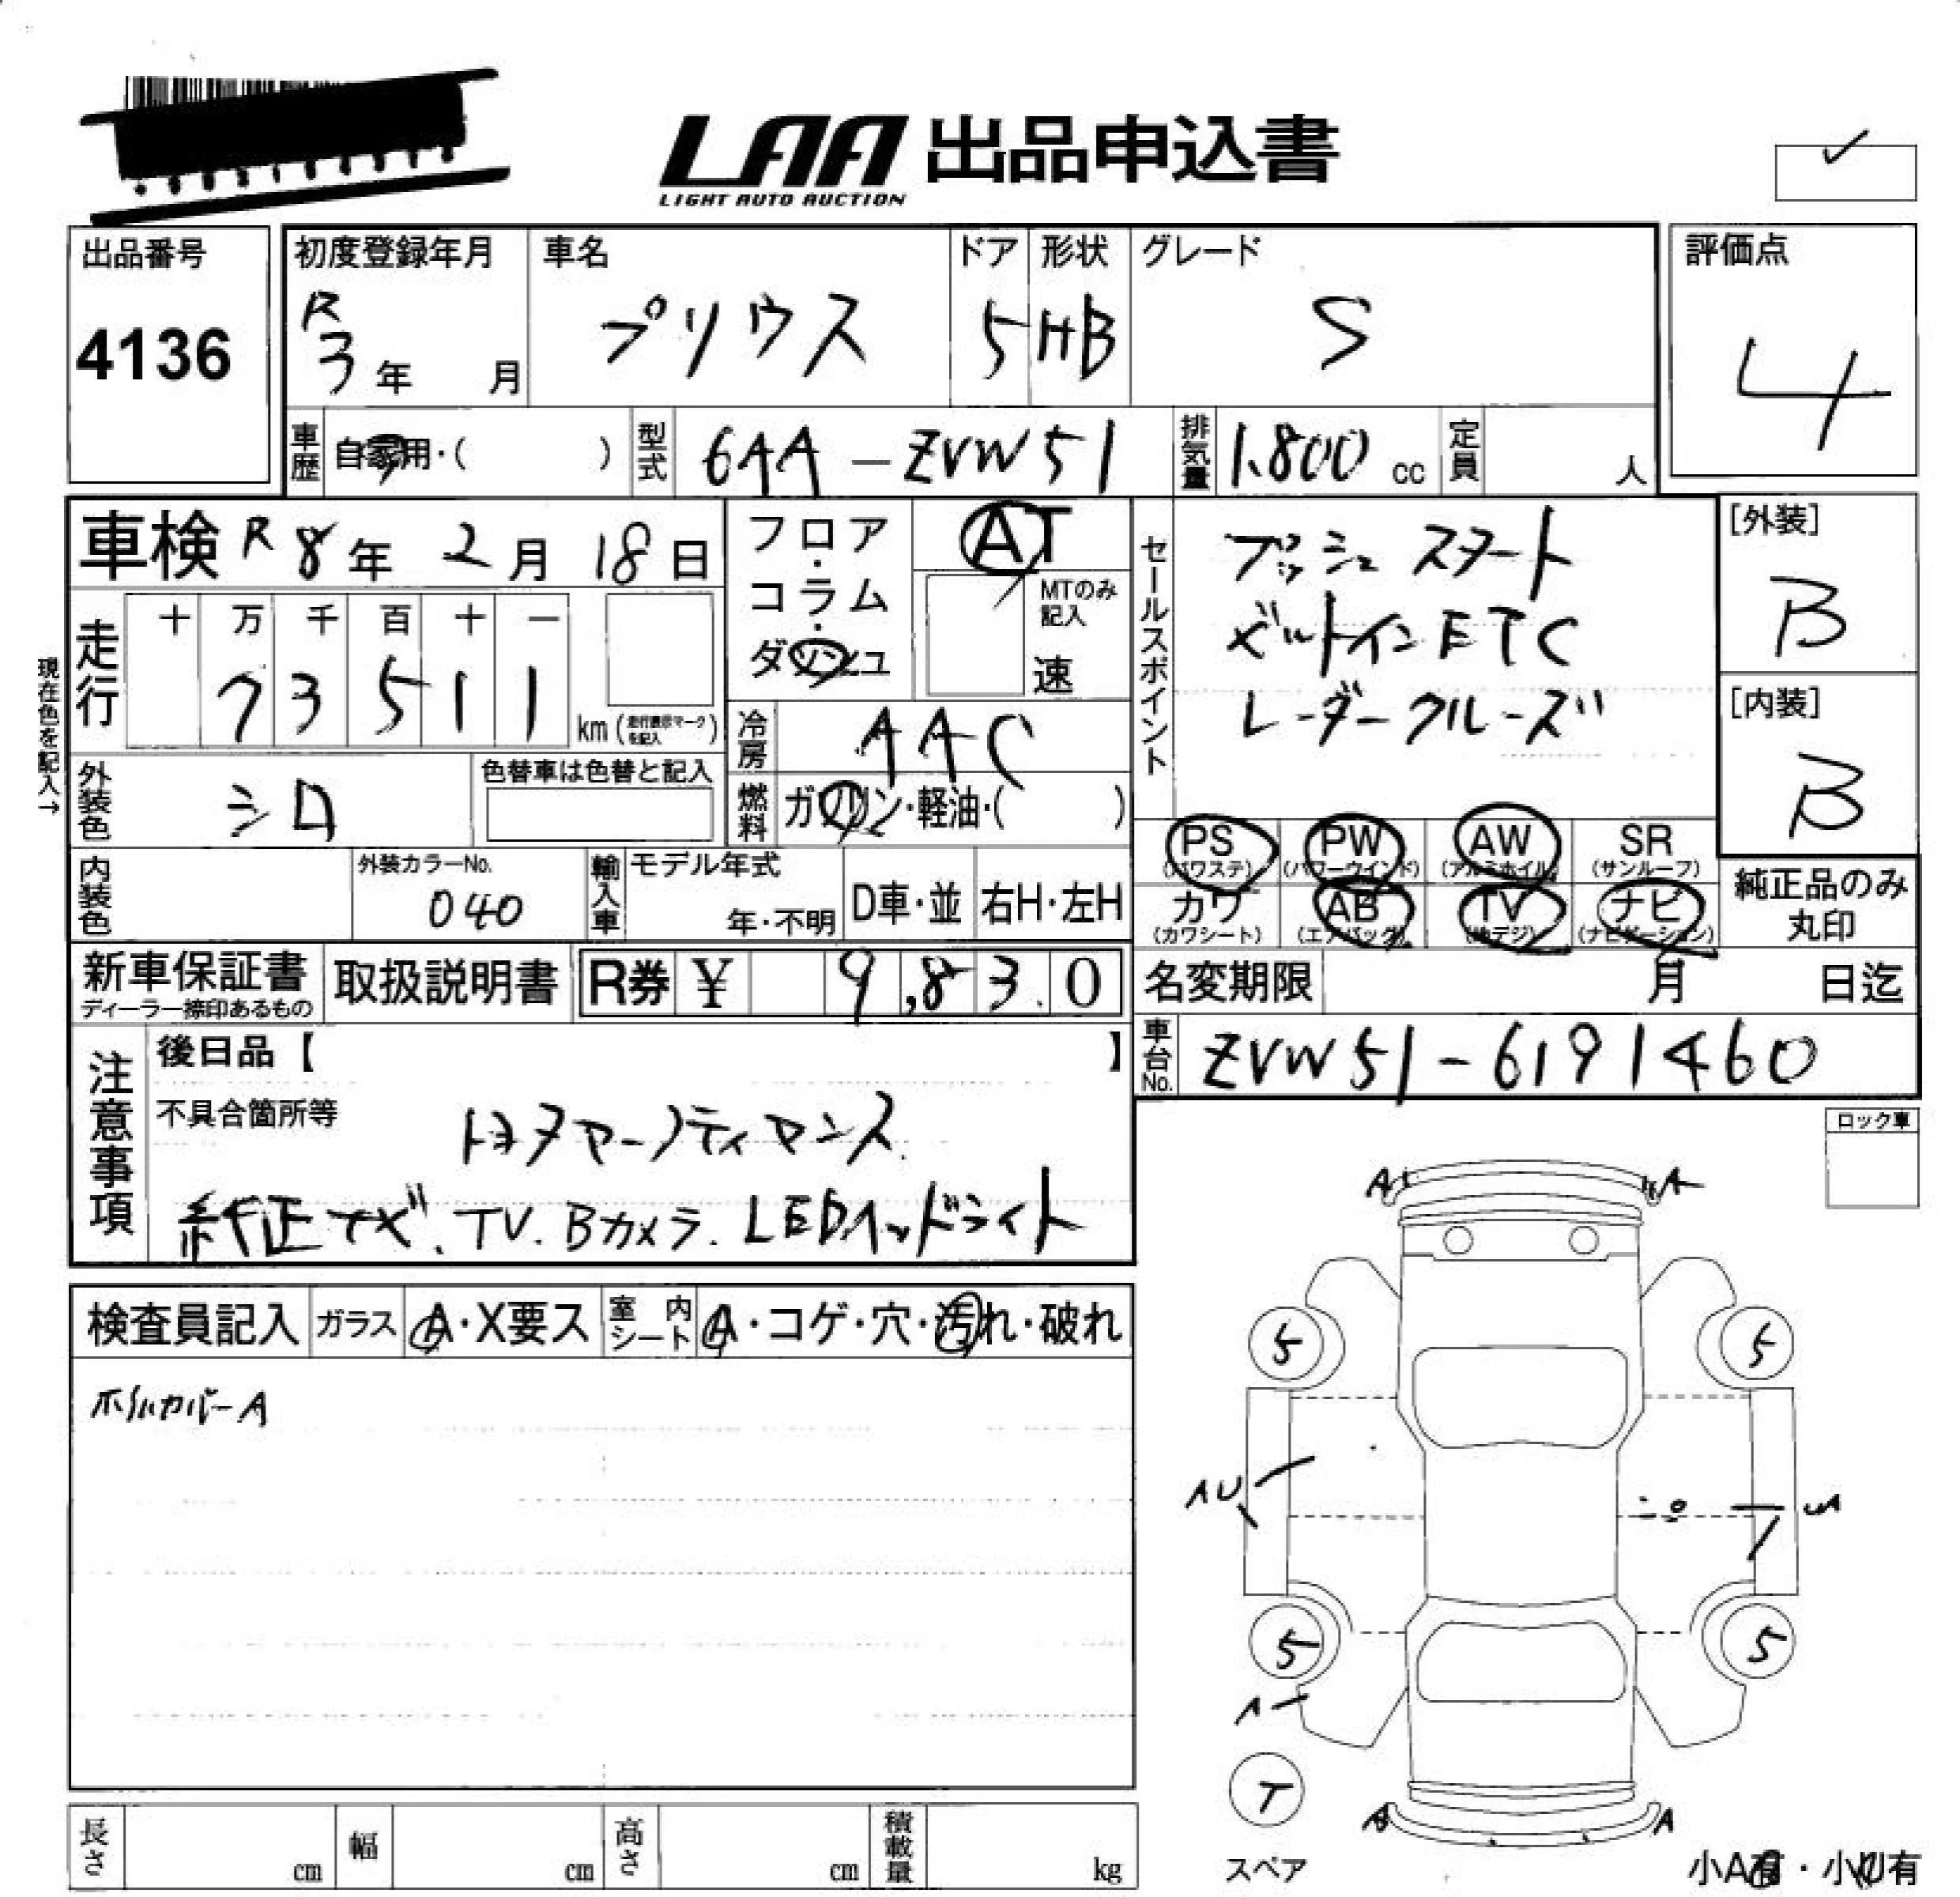 LAA 出品申込書
LIGHT AUTO AUCTION
出品番号
4136
初度登録年月
R
3年 月
車名
プリウス
ドア
5
形状
HB
グレード
S
評価点
4
車歴
自家用・( )
型式
6AA-ZVW51
排気量
1.800 cc
定員
人
車検 R 8年 2月 18日
走行
十 万 千 百 十 一
7 3 5 1 1
km(走行表示マークを記入)
現在色を記入→
外装色
シロ
色替車は色替と記入
内装色
外装カラーNo.
040
フロア・コラム・ダッシュ
AT
MTのみ記入
速
冷房
AAC
燃料
ガソリン・軽油・( )
輸入車
モデル年式
年・不明
D車・並
右H・左H
セールスポイント
プッシュスタート
ビルトインETC
レーダークルーズ
[外装]
B
[内装]
B
PS (パワステ)
PW (パワーウインド)
AW (アルミホイル)
SR (サンルーフ)
カワ (カワシート)
AB (エアバッグ)
TV (地デジ)
ナビ (ナビゲーション)
純正品のみ丸印
新車保証書
ディーラー捺印あるもの
取扱説明書
R券 ¥ 9,830
名変期限 月 日迄
車台No.
ZVW51-6191460
注意事項
後日品【 】
不具合箇所等
純正ナビ.TV.Bカメラ.LEDヘッドライト
ロック車
検査員記入
ガラス
A・X要ス
室内シート
A・コゲ・穴・汚れ・破れ
ホイルカバーA
A A
5 5
AU
5 5
A
T
スペア
A A
小A有・小U有
長さ cm
幅 cm
高さ cm
積載量 kg